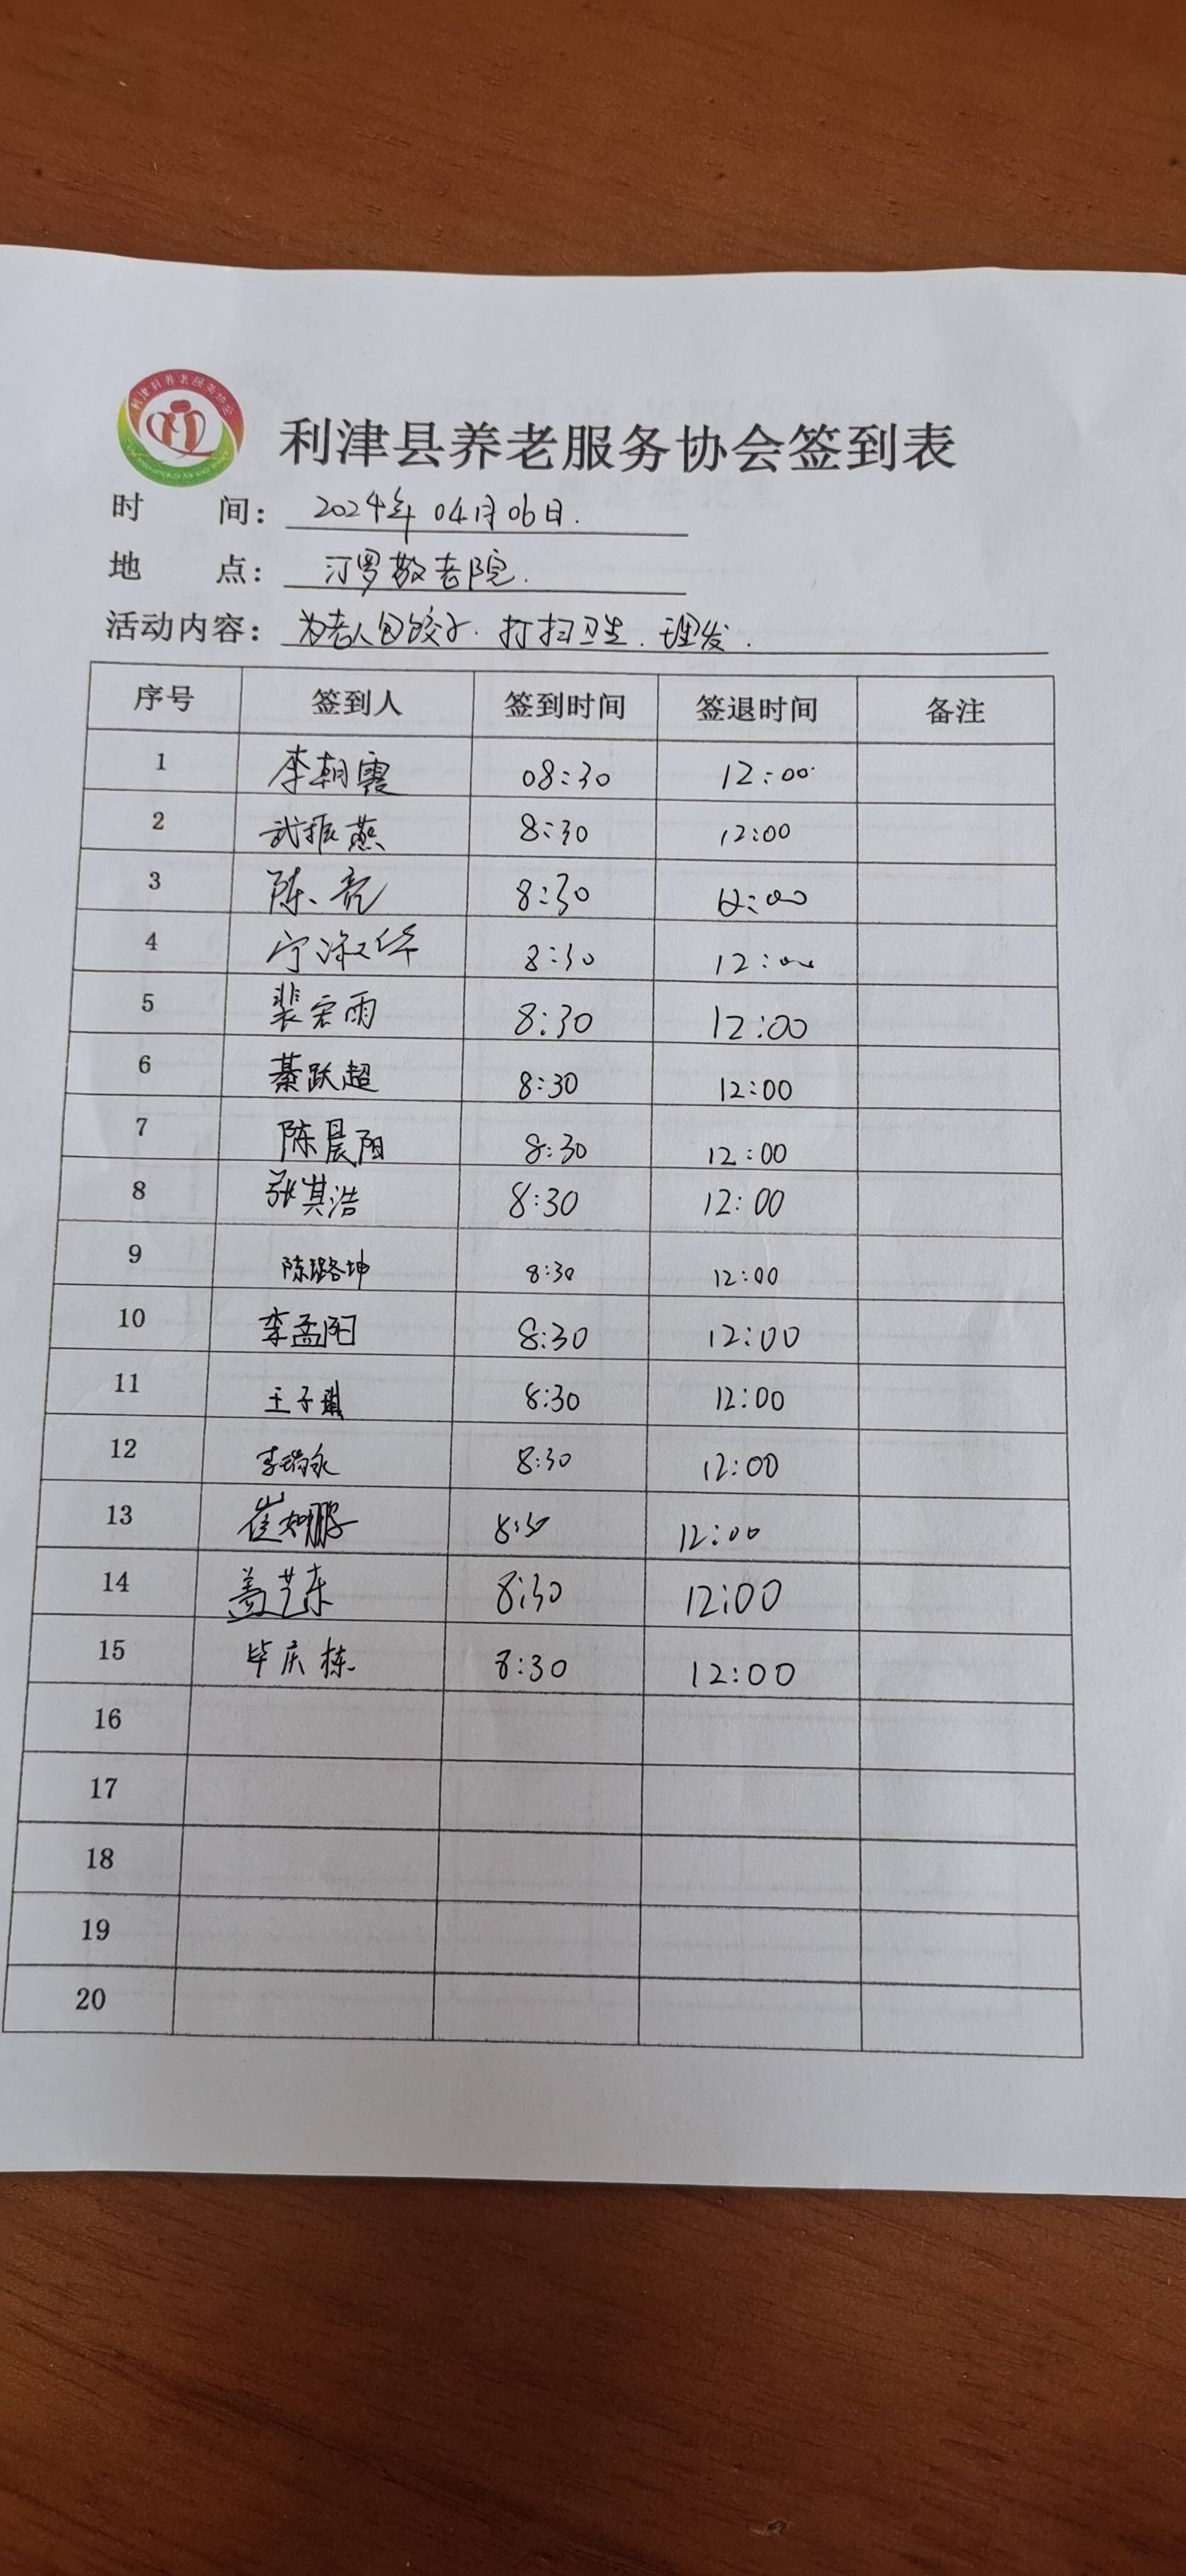 利津县养老服务协会
利津县养老服务协会签到表
时 间： 2024年04月06日.
地 点： 汀罗敬老院.
活动内容： 为老人包饺子. 打扫卫生. 理发.
序号 签到人 签到时间 签退时间 备注
1 李朝霞 08:30 12:00
2 武振燕 8:30 12:00
3 陈亮 8:30 12:00
4 宁淑华 8:30 12:00
5 裴宏雨 8:30 12:00
6 綦跃超 8:30 12:00
7 陈晨阳 8:30 12:00
8 张其浩 8:30 12:00
9 陈璐坤 8:30 12:00
10 李孟阳 8:30 12:00
11 王子琪 8:30 12:00
12 李瑞永 8:30 12:00
13 崔如鹏 8:30 12:00
14 盖芝东 8:30 12:00
15 毕庆栋 8:30 12:00
16
17
18
19
20